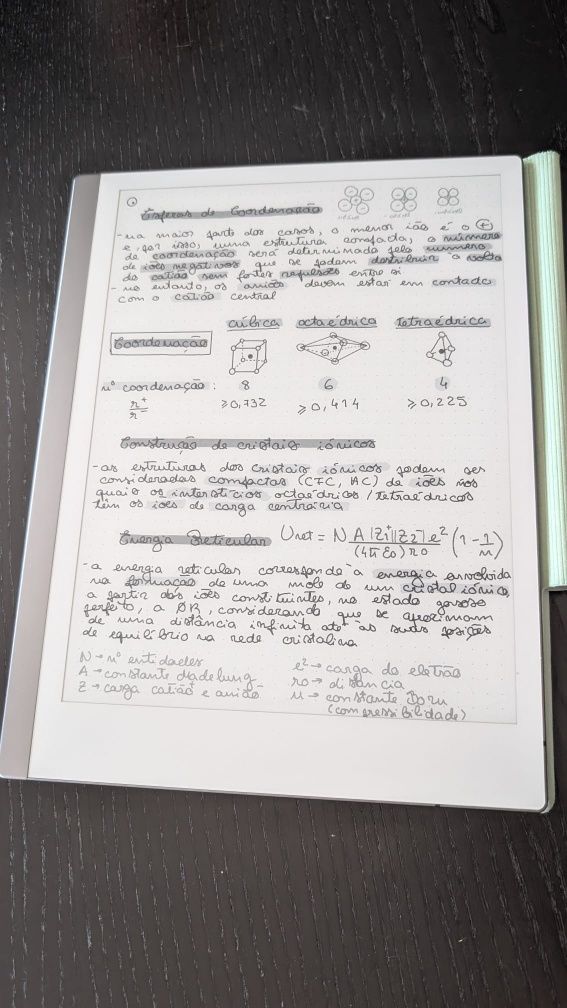 Esferas de Coordenação
-na maior parte dos casos, o menor ião é o +
e, por isso, numa estrutura compacta, o número
de coordenação será determinado pelo número
de iões negativos que se podem distribuir à volta
do catião sem fortes repulsões entre si
- no entanto, os aniões devem estar em contacto
com o catião central
cúbica octaédrica tetraédrica
Coordenação
nº coordenação : 8 6 4
r⁺/r⁻ ≥0,732 ≥0,414 ≥0,225
Construção de cristais iónicos
-as estruturas dos cristais iónicos podem ser
consideradas compactas (CFC, HC) de iões nos
quais os interstícios octaédricos / tetraédricos
têm os iões de carga contrária
Energia Reticular Unet = N A |Z1⁺||Z2⁻| e² / (4π ε0) r0 (1 - 1/n)
-a energia reticular corresponde à energia envolvida
na formação de uma mole de um cristal iónico,
a partir dos iões constituintes, no estado gasoso
perfeito, a 0K, considerando que se aproximam
de uma distância infinita até às suas posições
de equilíbrio na rede cristalina
N→nº entidades e²→carga do eletrão
A→constante Madelung r0→distância
Z→carga catião e anião n→ constante Born
(compressibilidade)